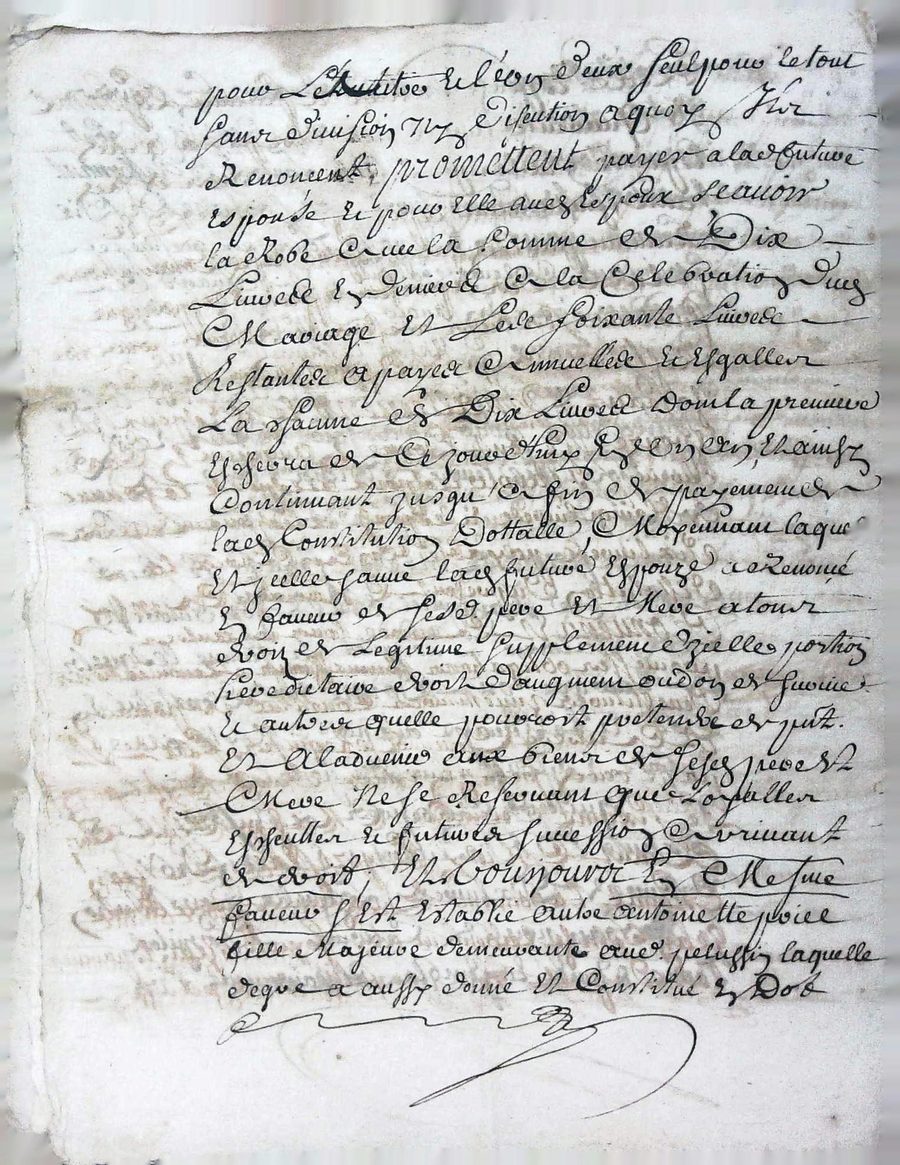 pour L'autre et l'un d'eux seul pour le tout
sans division ny discution a quoy Ils
Renoncent, promettent payer a lad future
Espouse et pour elle aud Espoux sçauoir
la Robe avec la somme de Dix
Livres En deniers a la Celebration dud
Mariage et Les soixante Livres
Restantes a payes annuelles et Esgalles
La somme de Dix Livres dont la premiere
Escherra de Ce jourdhuy En un an, et ainsy
Continuant jusqu'a fin de payement de
lad Constitution Dottalle, Moyennant laque
Et jcelle sauue lad future Espouze a Renoncé
En faueur de sesd pere et Mere a tous
droits de Legitime supplement d'jcelle portion
hereditaire droit d'augment ou don de survie
et autres quelle pourroit pretendre de pnt.
Et A laduenir aux biens de sesd pere et
Mere Ne se Reseruant que Loyalles
Escheuttes et futures succession arrivant
de droit, Et tousjours En Mesme
faueur s'Est Establie autre antoinette poicé
fille Majeure demeurante aud. pelussin laquelle
de gré a aussy donné Et Constitué En Dot